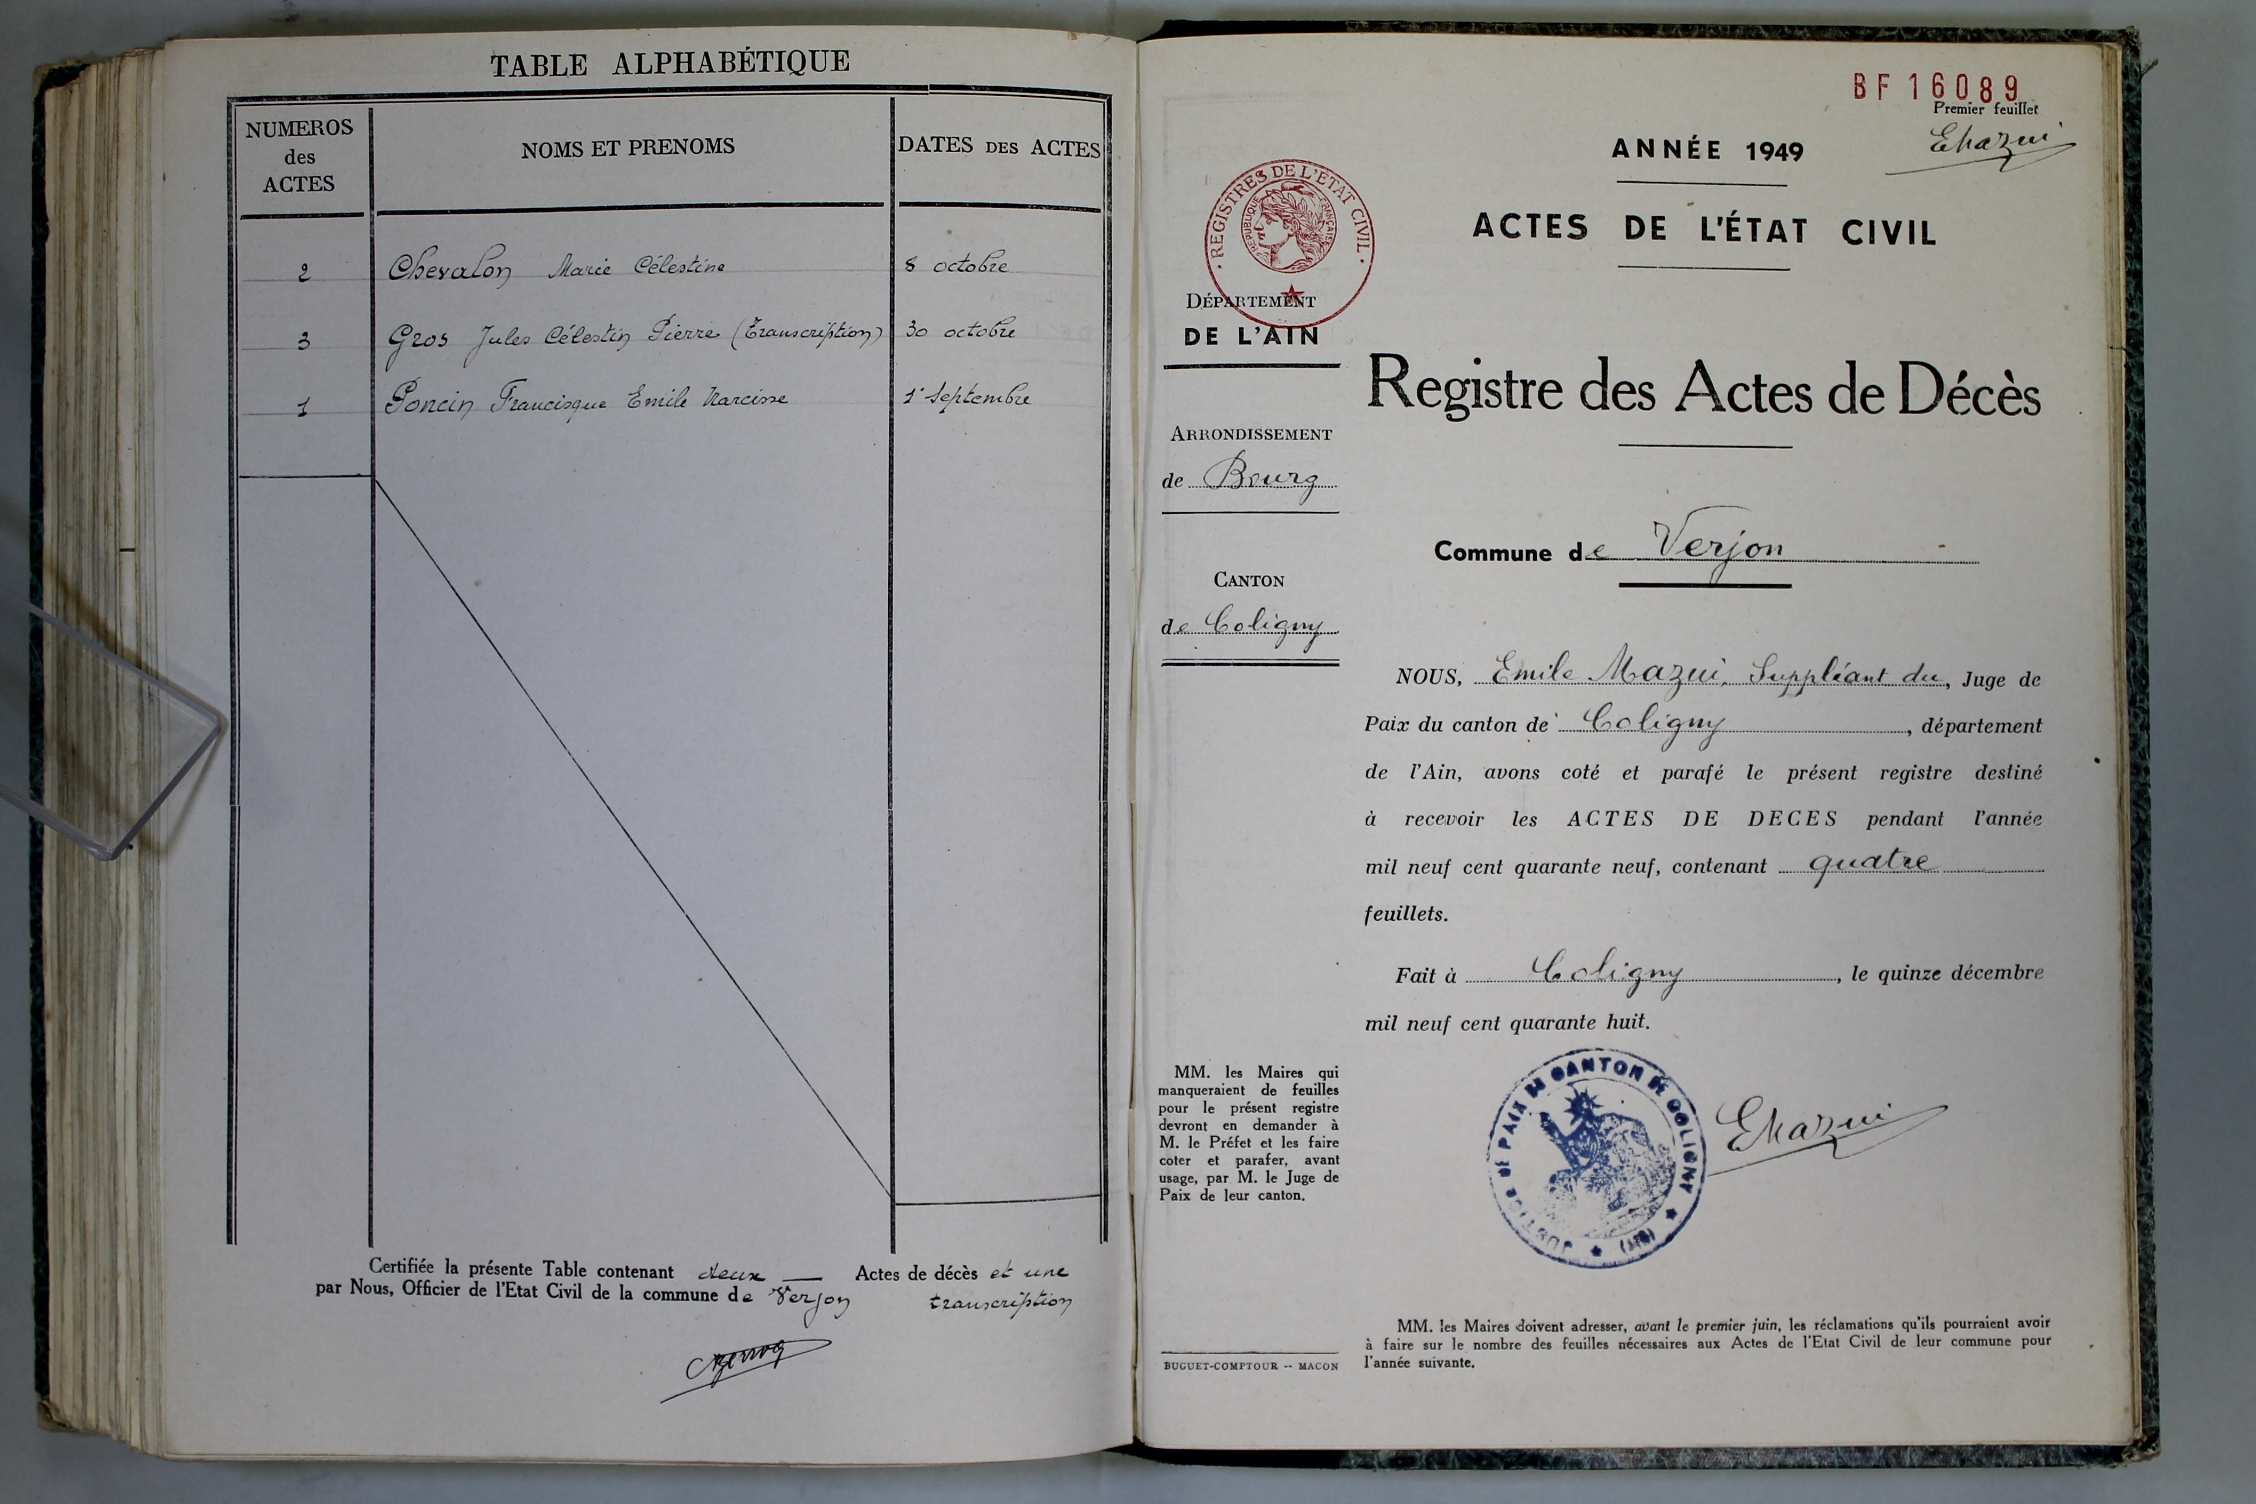 TABLE ALPHABÉTIQUE
NUMEROS des ACTES
NOMS ET PRENOMS
DATES DES ACTES
2 Chevalon Marie Célestine 8 octobre
3 Gros Jules Célestin Pierre (Transcription) 30 octobre
1 Poncin Francisque Emile Narcisse 1er Septembre
Certifiée la présente Table contenant deux Actes de décès et une
par Nous, Officier de l'Etat Civil de la commune de Verjon transcription
BF 16089
Premier feuillet
EMazui
ANNÉE 1949
ACTES DE L'ÉTAT CIVIL
REGISTRES DE L'ETAT CIVIL
REPUBLIQUE FRANÇAISE
DÉPARTEMENT
DE L'AIN
ARRONDISSEMENT
de Bourg
CANTON
de Coligny
Registre des Actes de Décès
Commune de Verjon
NOUS, Emile Mazui, Suppléant du, Juge de
Paix du canton de Coligny, département
de l'Ain, avons coté et parafé le présent registre destiné
à recevoir les ACTES DE DECES pendant l'année
mil neuf cent quarante neuf, contenant quatre
feuillets.
Fait à Coligny, le quinze décembre
mil neuf cent quarante huit.
JUSTICE DE PAIX DU CANTON DE COLIGNY (AIN)
EMazui
MM. les Maires qui
manqueraient de feuilles
pour le présent registre
devront en demander à
M. le Préfet et les faire
coter et parafer, avant
usage, par M. le Juge de
Paix de leur canton.
BUGUET-COMPTOUR -- MACON
MM. les Maires doivent adresser, avant le premier juin, les réclamations qu'ils pourraient avoir
à faire sur le nombre des feuilles nécessaires aux Actes de l'Etat Civil de leur commune pour
l'année suivante.